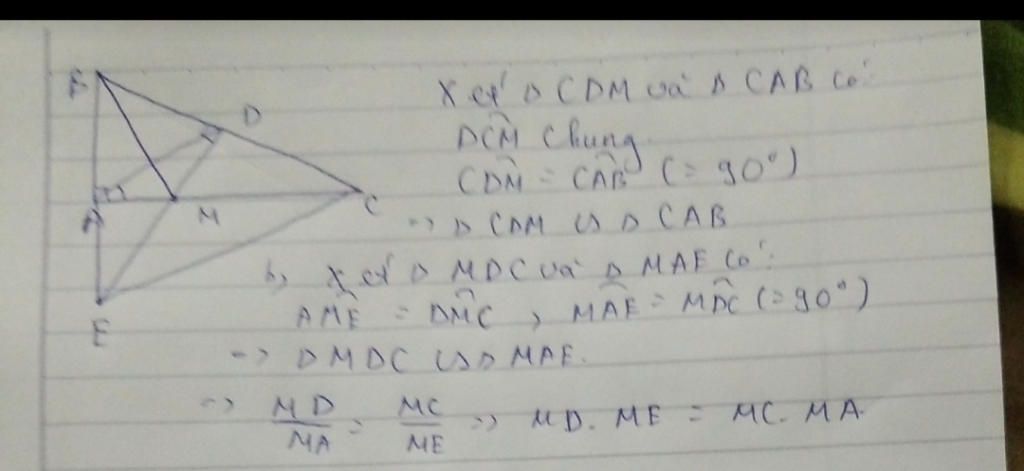 B
D
A
M
C
E
Xét Δ CDM và Δ CAB có:
DCM chung
CDM = CAB (= 90°)
=> Δ CDM ∽ Δ CAB
b, Xét Δ MDC và Δ MAE có:
AME = DMC , MAE = MDC (= 90°)
=> Δ MDC ∽ Δ MAE.
=> MD/MA = MC/ME => MD. ME = MC. MA